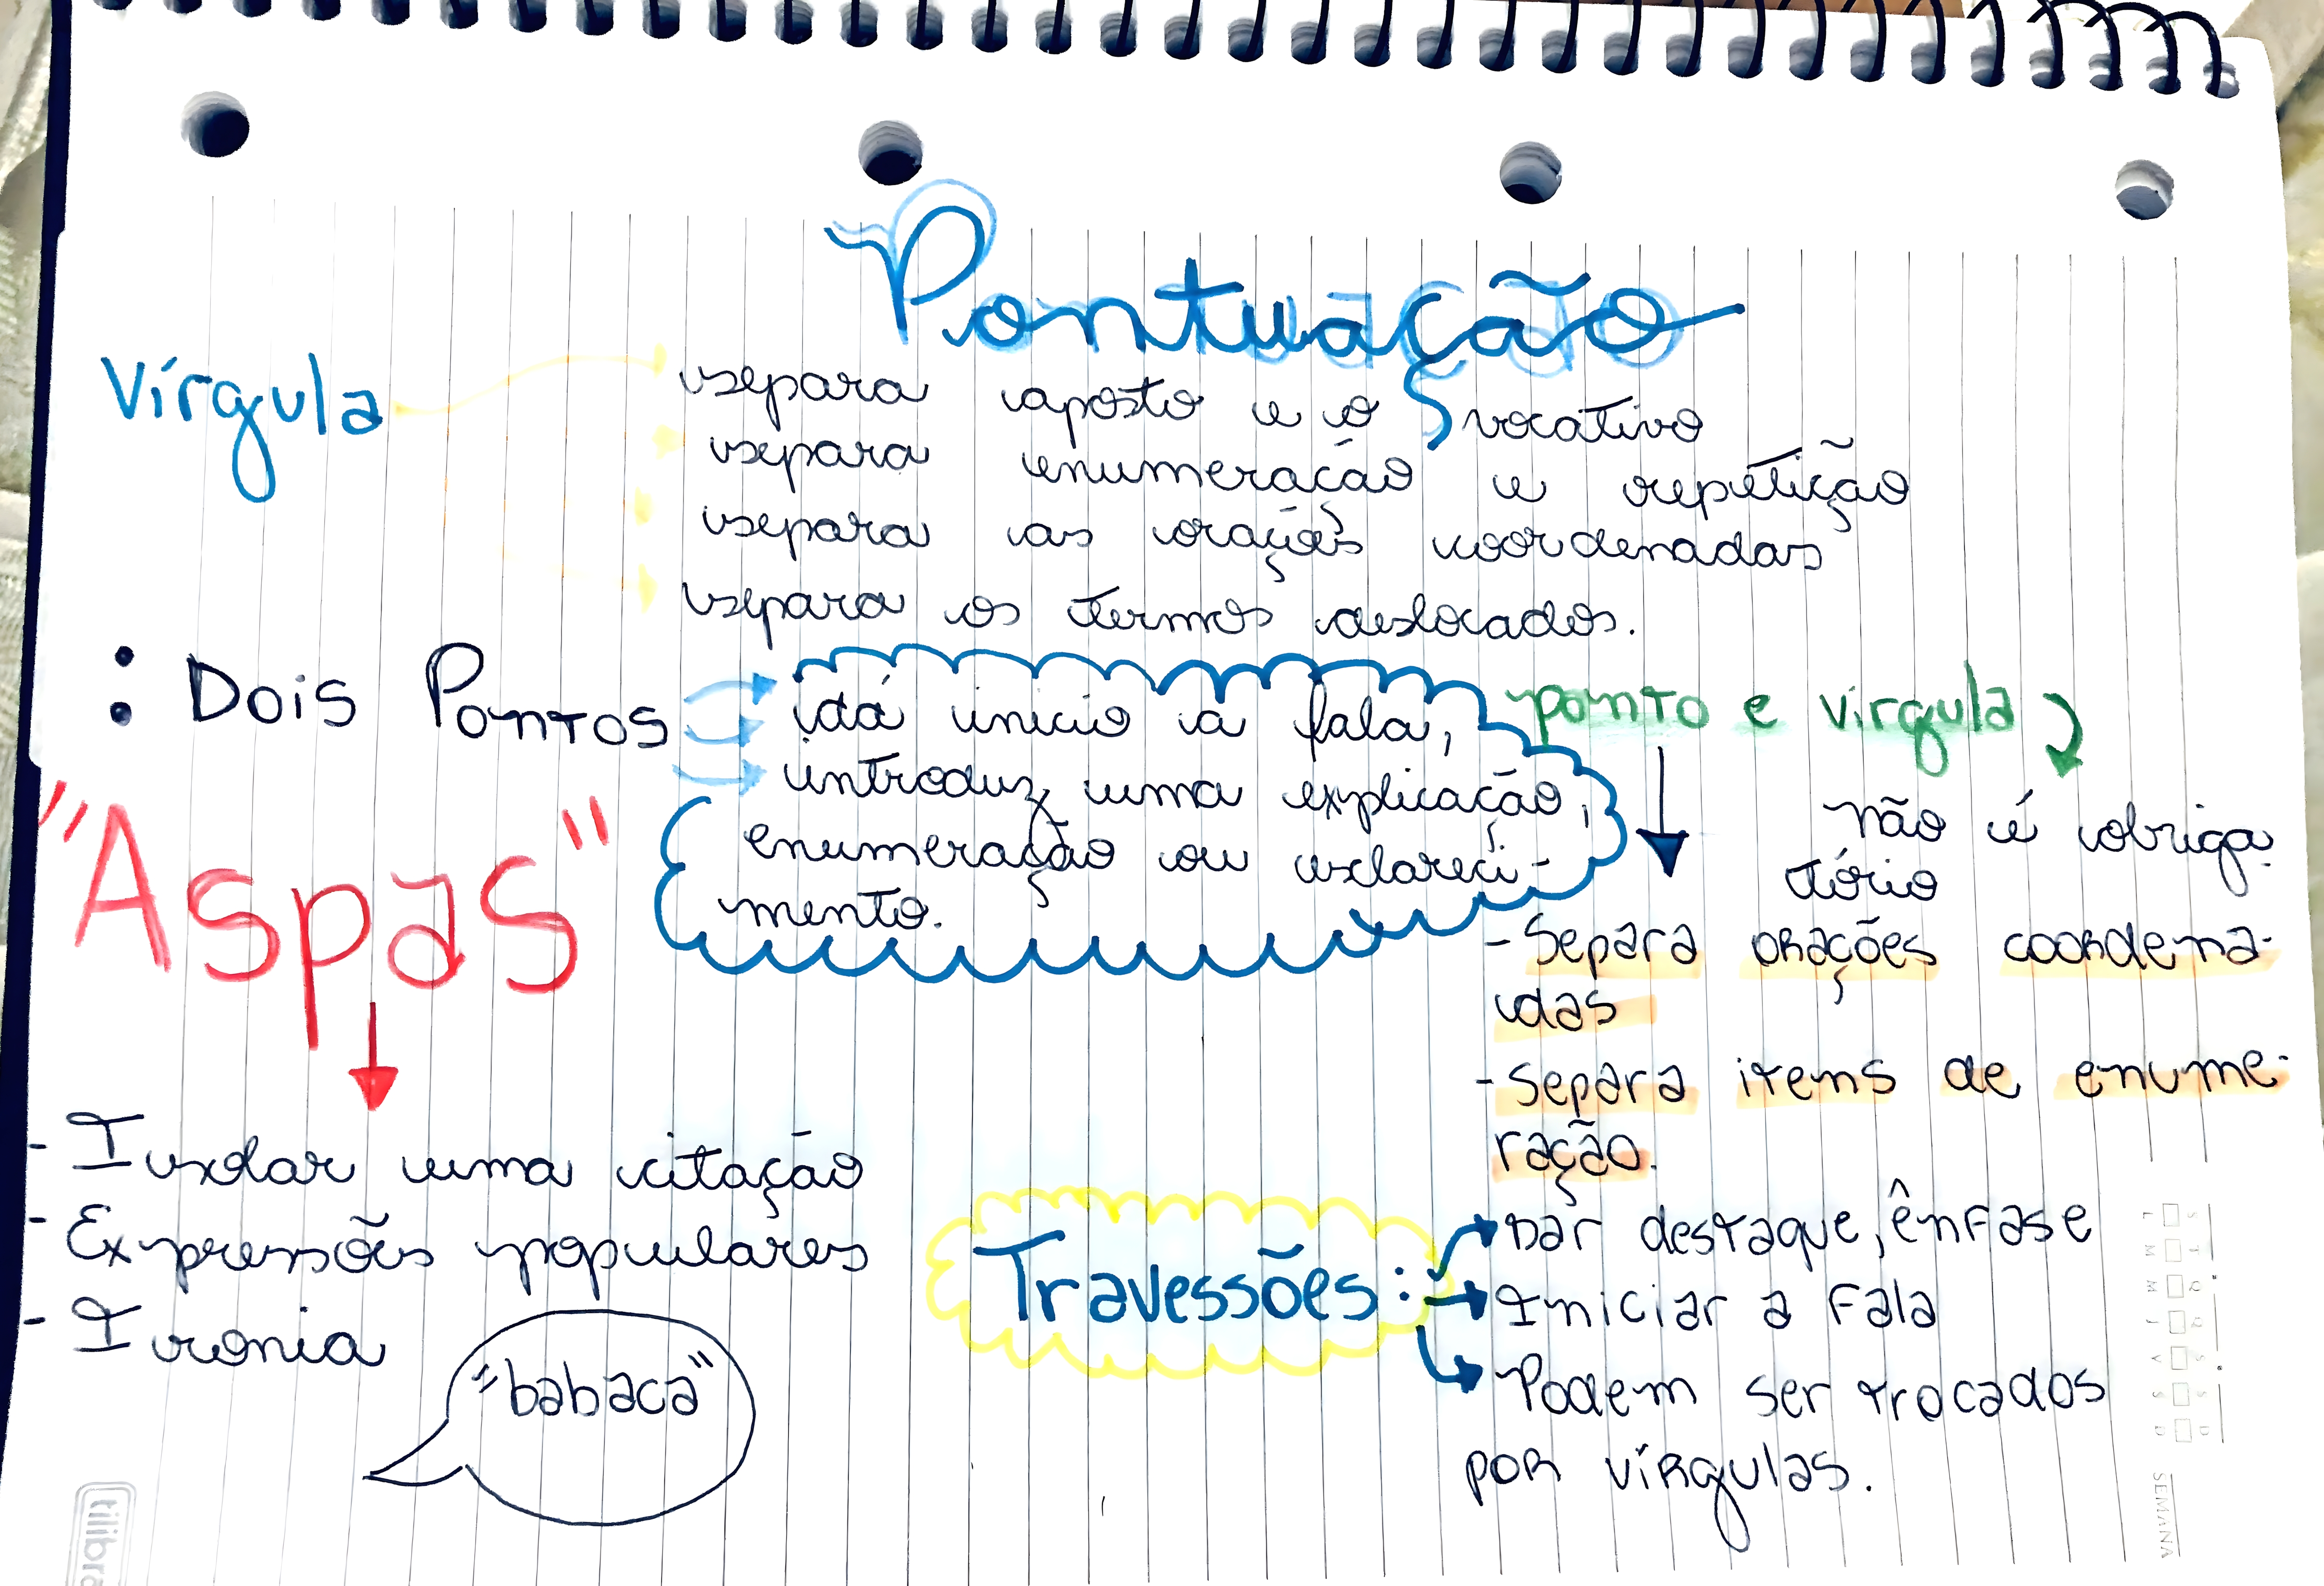 Pontuação
Vírgula
separa aposto e o vocativo
separa enumeração e repetição
separa as orações coordenadas
separa os termos deslocados.
: Dois Pontos
dá inicio a fala,
introduz uma explicação,
enumeração ou esclareci-
mento.
ponto e vírgula
não é obriga-
tório
- Separa orações coordena-
das
- Separa itens de enume-
ração.
"Aspas"
- Isolar uma citação
- Expressões populares
- Ironia
"babaca"
Travessões:
Dar destaque, ênfase
Iniciar a fala
Podem ser trocados
por vírgulas.
tilibra
SEMANA
S T Q Q S S D
L M M J V S D